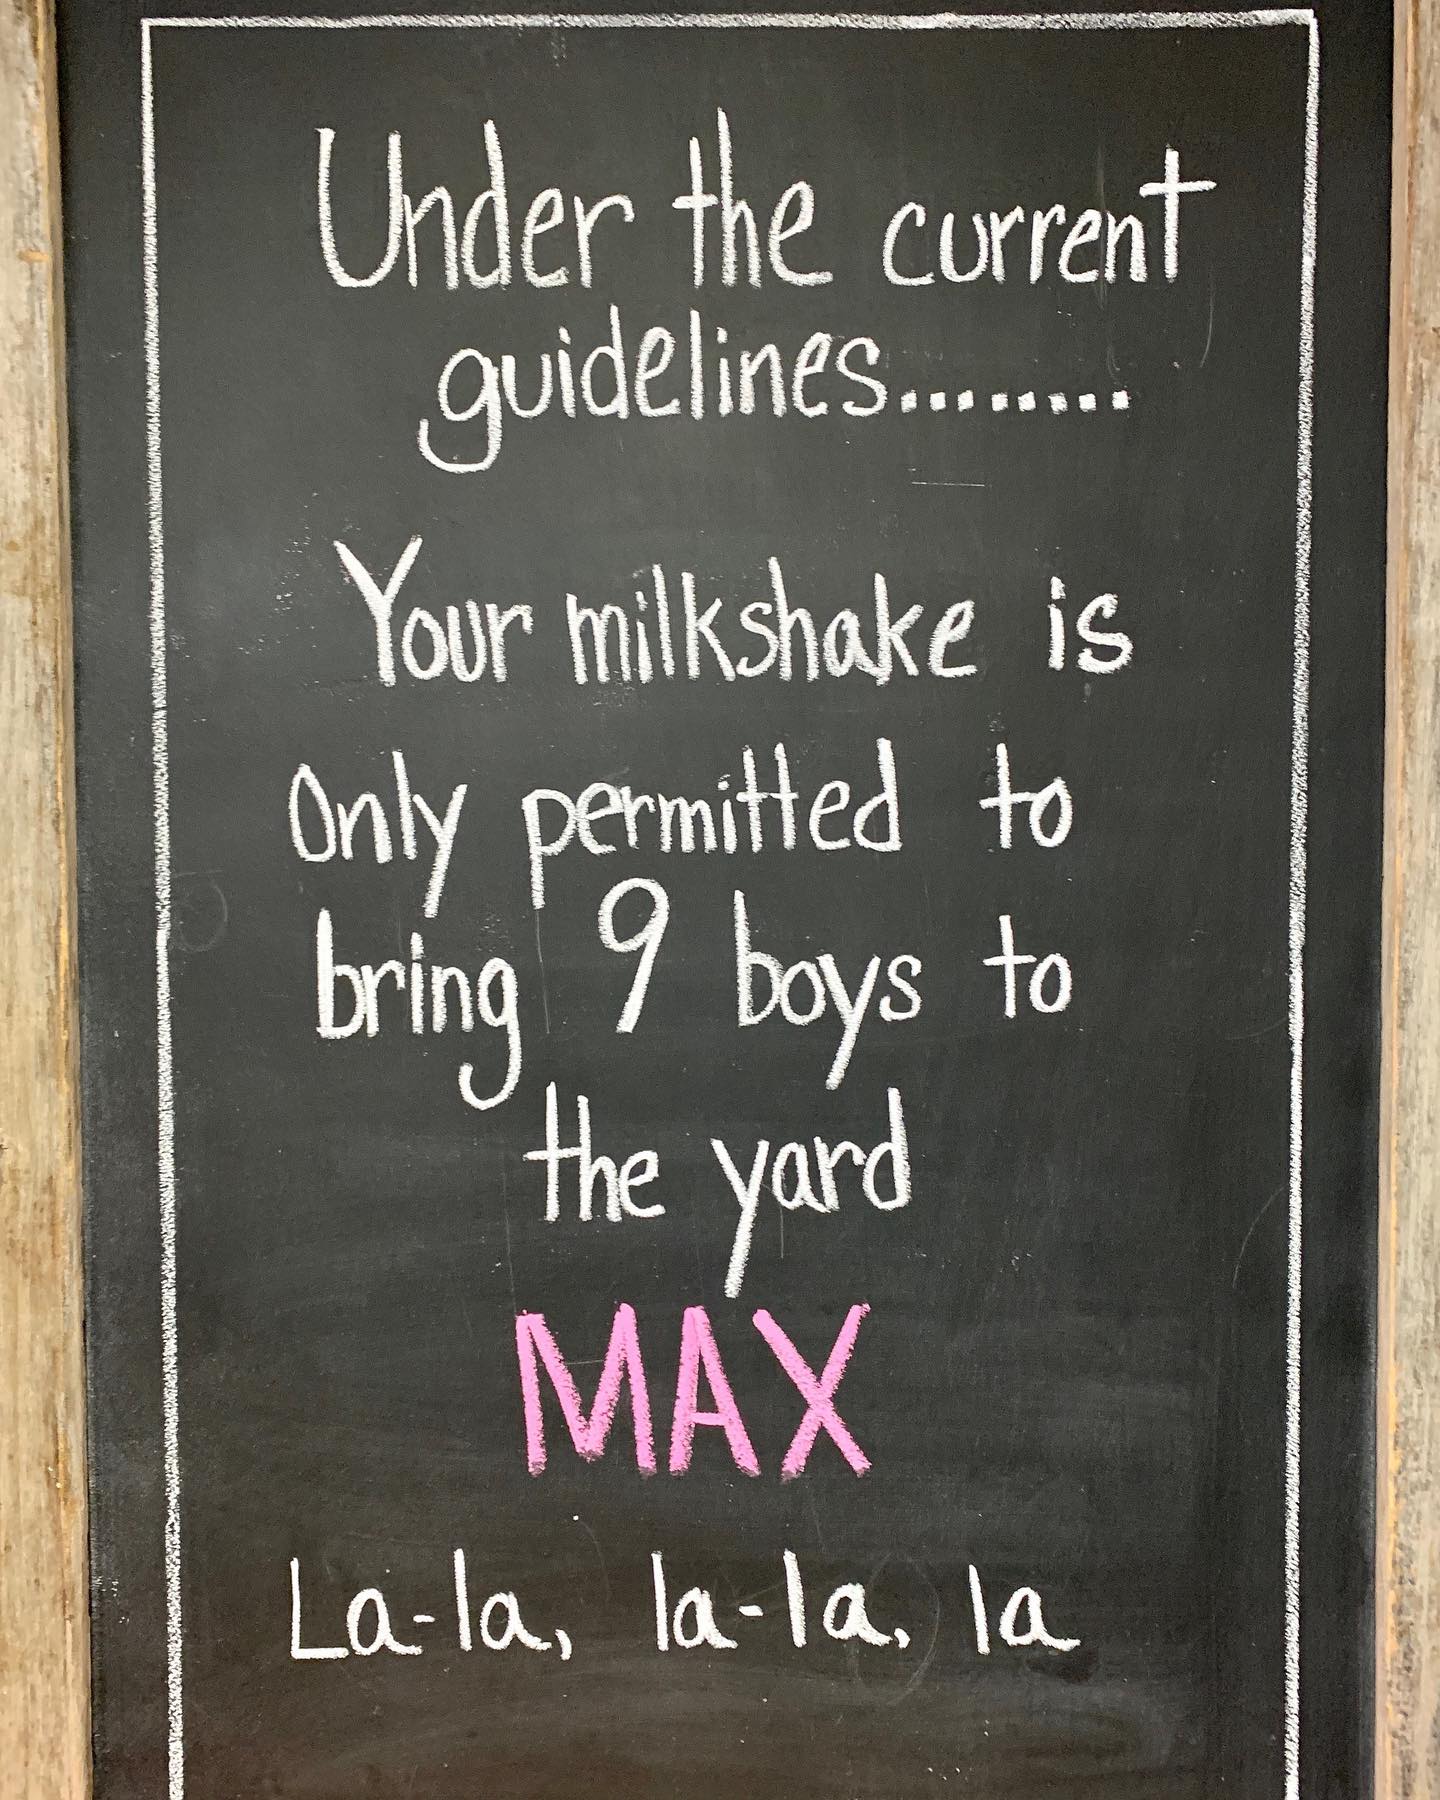 Under the current
guidelines........
Your milkshake is
Only permitted to
bring 9 boys to
the yard
MAX
La-la, la-la, la